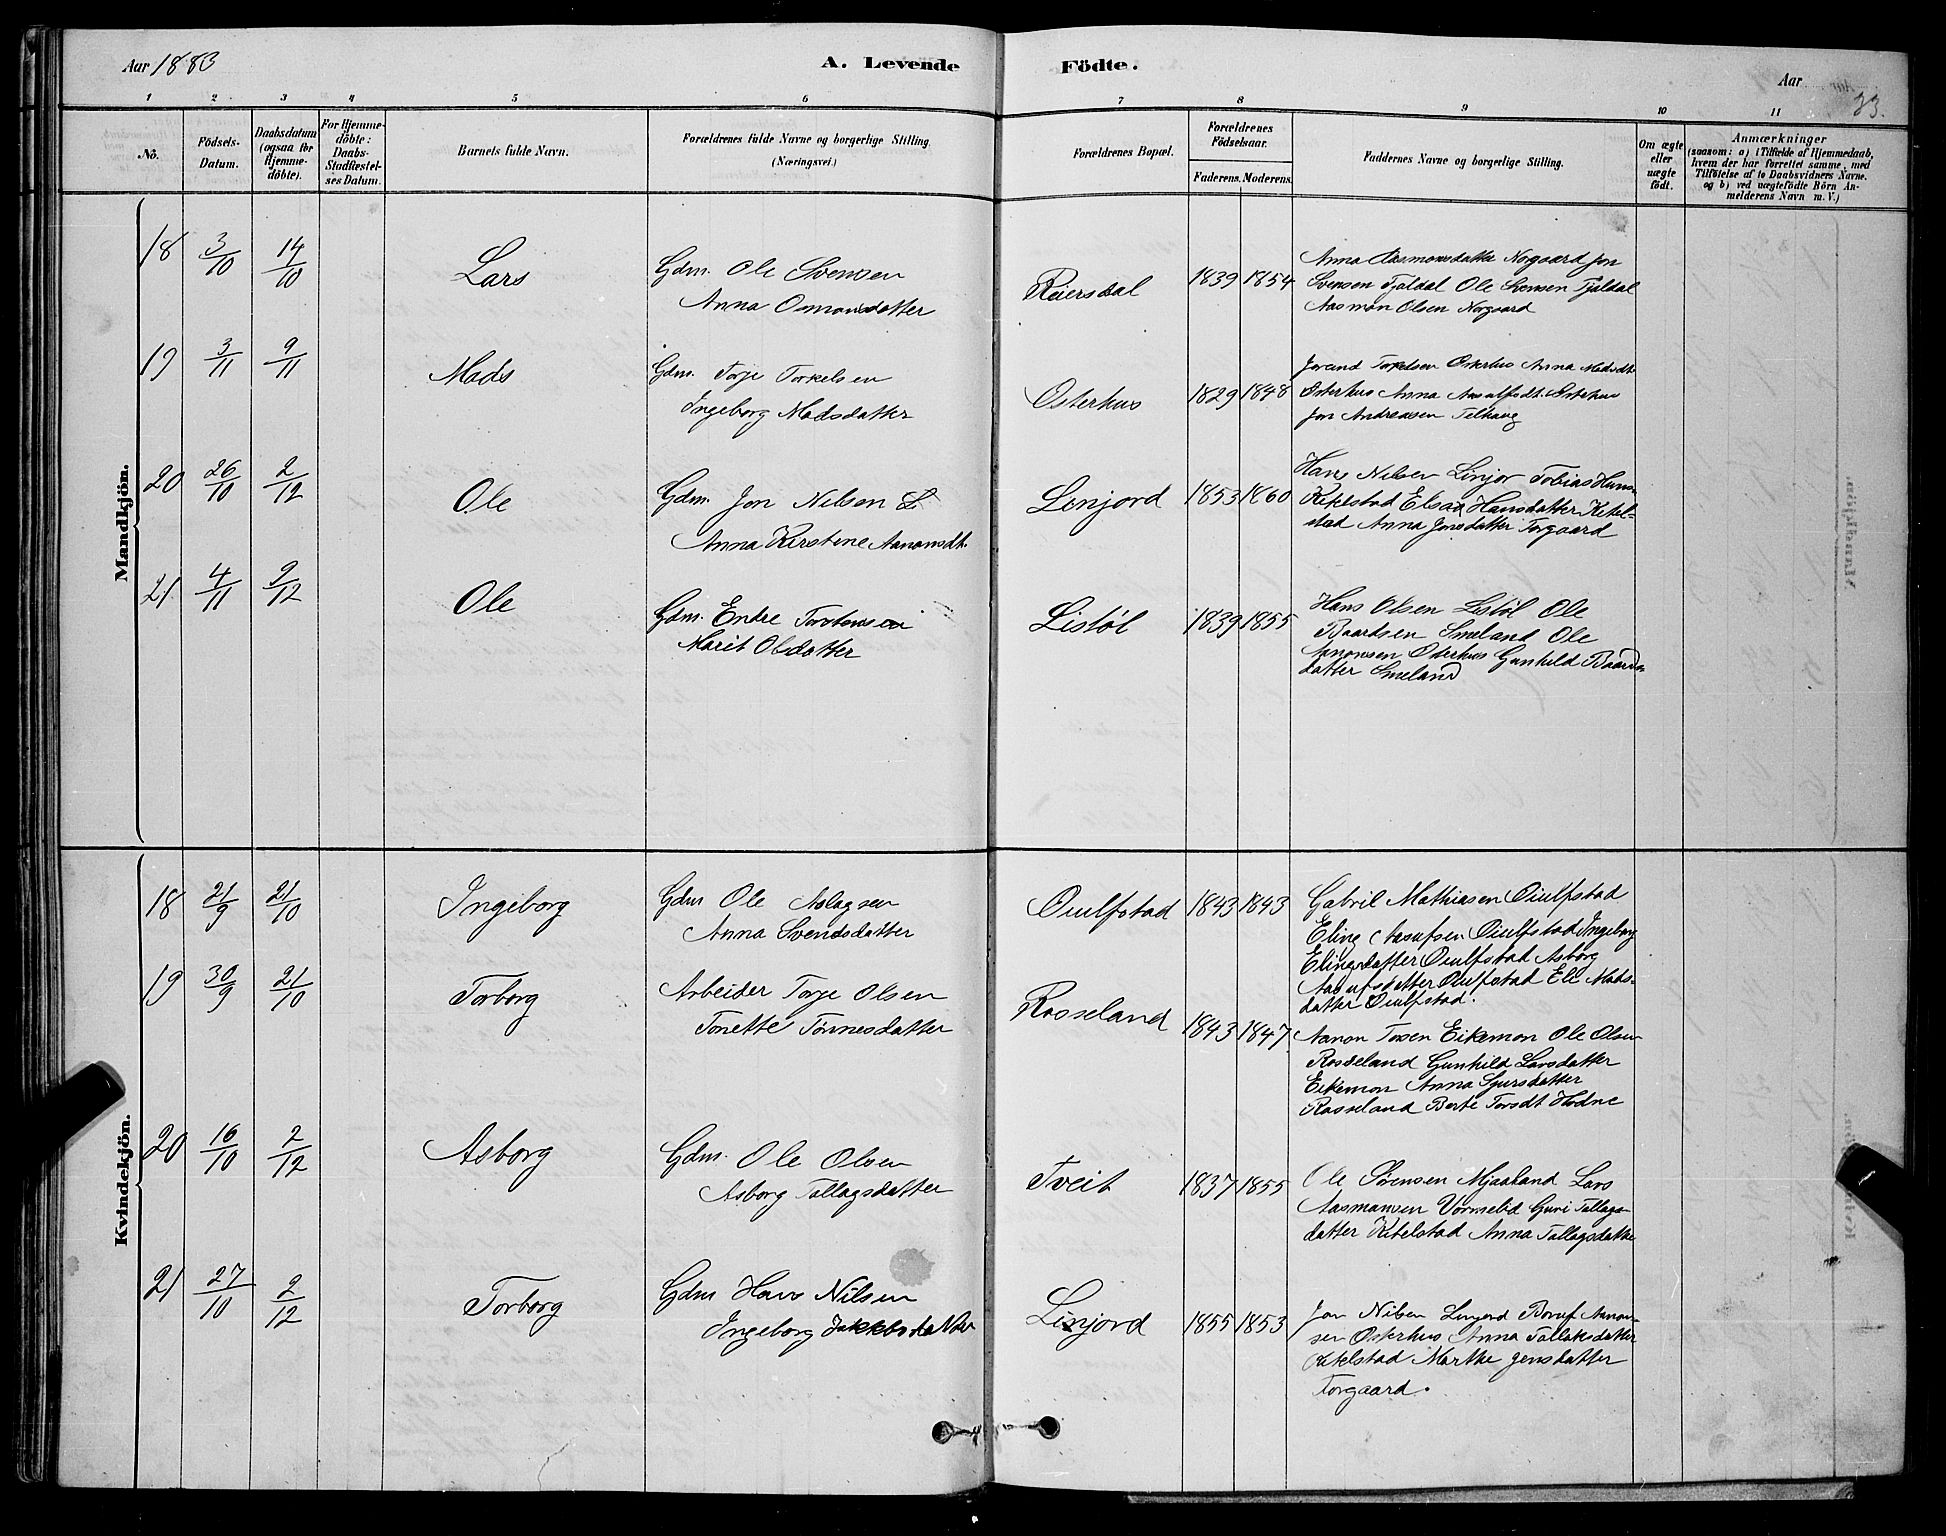 Aar 1883
A. Levende
Födte.
Aar
33.
1 2 3 4 5 6 7 8 9 10 11
No.
Födsels-Datum.
Daabsdatum (ogsaa for Hjemme-döbte).
For Hjemme-döbte: Daabs-Stadfæstel-ses Datum.
Barnets fulde Navn.
Forældrenes fulde Navne og borgerlige Stilling. (Næringsvei.)
Forældrenes Bopæl.
Forældrenes Födselsaar.
Faderens. Moderens.
Faddernes Navne og borgerlige Stilling.
Om ægte eller uægte födt.
Anmærkninger
(saasom: a) i Tilfælde af Hjemmedaab, hvem der har forrettet samme, med Tilföielse af to Daabsvidners Navne. og b) ved uægtefödte Börn An-melderens Navn m. V.)
Mandkjön.
18 3/10 14/10 Lars
Gdm. Ole Svensen
Anna Osmonsdatter
Reiersdal 1839 1854
Anna Aasmonsdatter Norgaard Jon
Svensen Tjaldal Ole Svensen Tjaldal
Aasmon Olsen Norgaard
19 3/11 9/11 Mads
Gdm. Torje Torkelsen
Ingeborg Madsdatter
Osterhus 1829 1848
Jorand Torkelsen Osterhus Anna Madsdt.
Osterhus Anna Aasulfsdt. Osterhus
Jon Andreasen Telhaug
20 26/10 2/12 Ole
Gdm. Jon Nilsen L.
Anna Kirstine Aanonsdt.
Linjord 1853 1860
Hans Nilsen Linjor Tobias Hans-
Ketelstad Elsa Hansdatter Ketel-
stad Anna Jonsdatter Torgaard
21 4/11 9/12 Ole
Gdm. Endre Torstensen
Marit Olsdatter
Listöl 1839 1855
Hans Olsen Listöl Ole
Baardsen Smeland Ole
Aanonsen Osterhus Gunhild Baards-
datter Smeland
Kvindekjön.
18 21/9 21/10 Ingeborg
Gdm Ole Aslagsen
Anna Svendsdatter
Oiulfstad 1843 1843
Gabril Mathiasen Oiulfstad
Eling Aasufsen Oiulfstad Ingeborg
Elingsdatter Oiulfstad Asborg
Aasufsdatter Oiulfstad Eli Mads-
datter Oiulfstad.
19 30/9 21/10 Torborg
Arbeider Torje Olsen
Tonette Tönnesdatter
Rosseland 1843 1847
Aanon Torsen Eikemon Ole Olsen
Rosseland Gunhild Larsdatter
Eikemon Anna Sjursdatter
Rosseland Berte Torsdt Hodne
20 16/10 2/12 Asborg
Gdm. Ole Olsen
Asborg Tallagsdatter
Tveit 1837 1855
Ole Sörensen Mjaaland Lars
Aasmonsen Vormelid Guri Tallags-
datter Ketelstad Anna Tallagsdatter
21 27/10 2/12 Torborg
Gdm Hans Nilsen
Ingeborg Jakkbsdatter
Linjord 1855 1853
Jon Nilsen Linjord Boruf Aanon-
sen Osterhus Anna Tallaksdatter
Ketelstad Marthe Jensdatter
Torgaard.